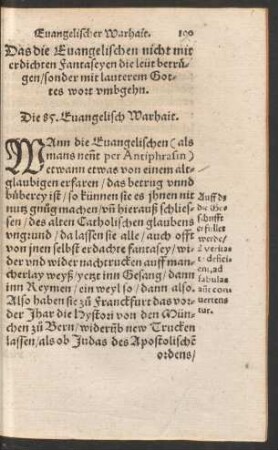 Euangelischer Warhait. 100
Das die Euangelischen nicht mit
erdichten Fantaseyen die leüt betrü-
gen/sonder mit lauterem Got-
tes wort vmbgehn.
Die 85. Euangelisch Warhait.
WAnn die Euangelischen (als
mans neñt per Antiphrasin)
etwann etwas von einem alt-
glaubigen erfaren / das betrug vnnd
büberey ist / so künnen sie es jhnen nit
nutz gnůg machen / vñ hierauß schlies-
sen / des alten Catholischen glaubens
vngrund / da lassen sie alle / auch offt
von jnen selbst erdachte fantasey / wi-
der vnd wider nachtrucken auff man-
cherlay weyß / yetzt inn Gesang / dann
inn Reymen / ein weyl so / dann also.
Also haben sie zů Franckfurt das vor-
der Jhar die Hystori von den Mün-
chen zů Bern / widerüb new Trucken
lassen / als ob Judas des Apostolischē
ordens/
Auff dz
die Ge-
schrifft
erfüllet
werde/
à verita-
te defici-
ent, ad
fabulas
aũt con-
uertens
tur.